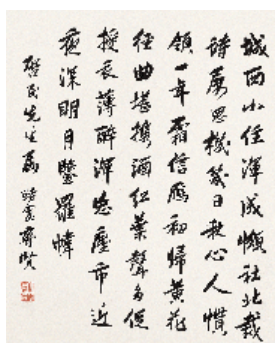 城西小住渾成懶社北裁
詩屬思機幾日秋心人慣
領一年霜信雁初歸黃花
徑曲堪攜酒紅葉聲多促
授衣薄醉渾忘塵市近
夜深明月鑒羅幃
啟民先生屬